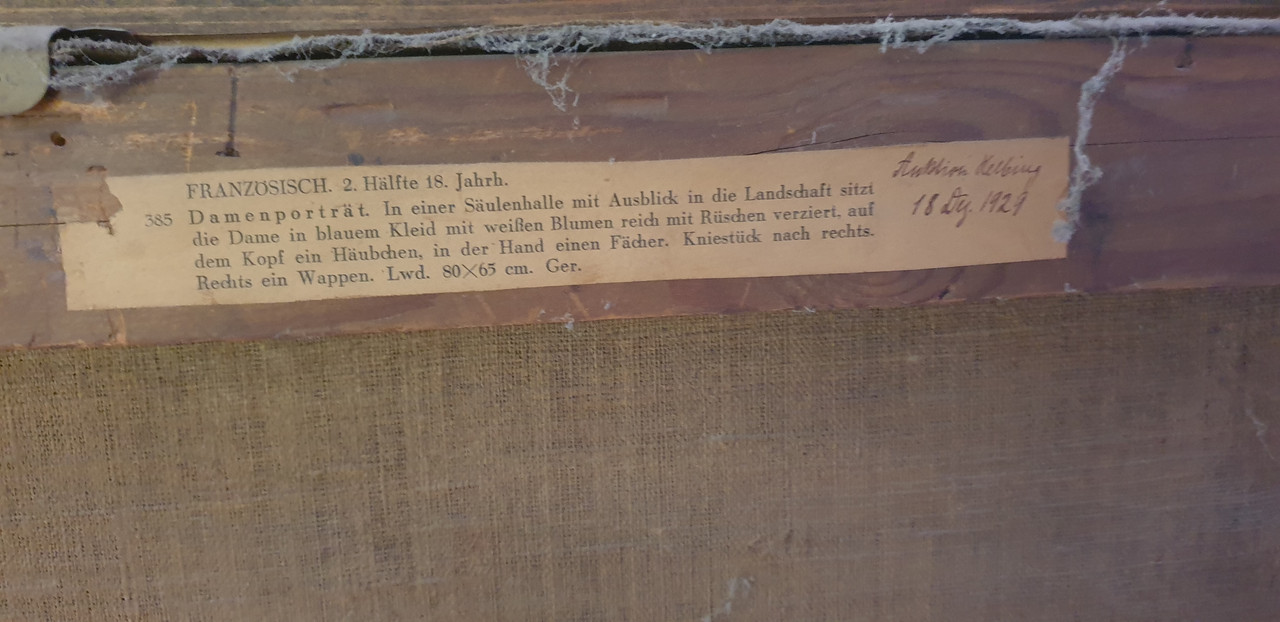 FRANZÖSISCH. 2. Hälfte 18. Jahrh.
385 Damenporträt. In einer Säulenhalle mit Ausblick in die Landschaft sitzt
die Dame in blauem Kleid mit weißen Blumen reich mit Rüschen verziert, auf
dem Kopf ein Häubchen, in der Hand einen Fächer. Kniestück nach rechts.
Rechts ein Wappen. Lwd. 80×65 cm. Ger.
Auktion Helbing
18 Dez. 1929